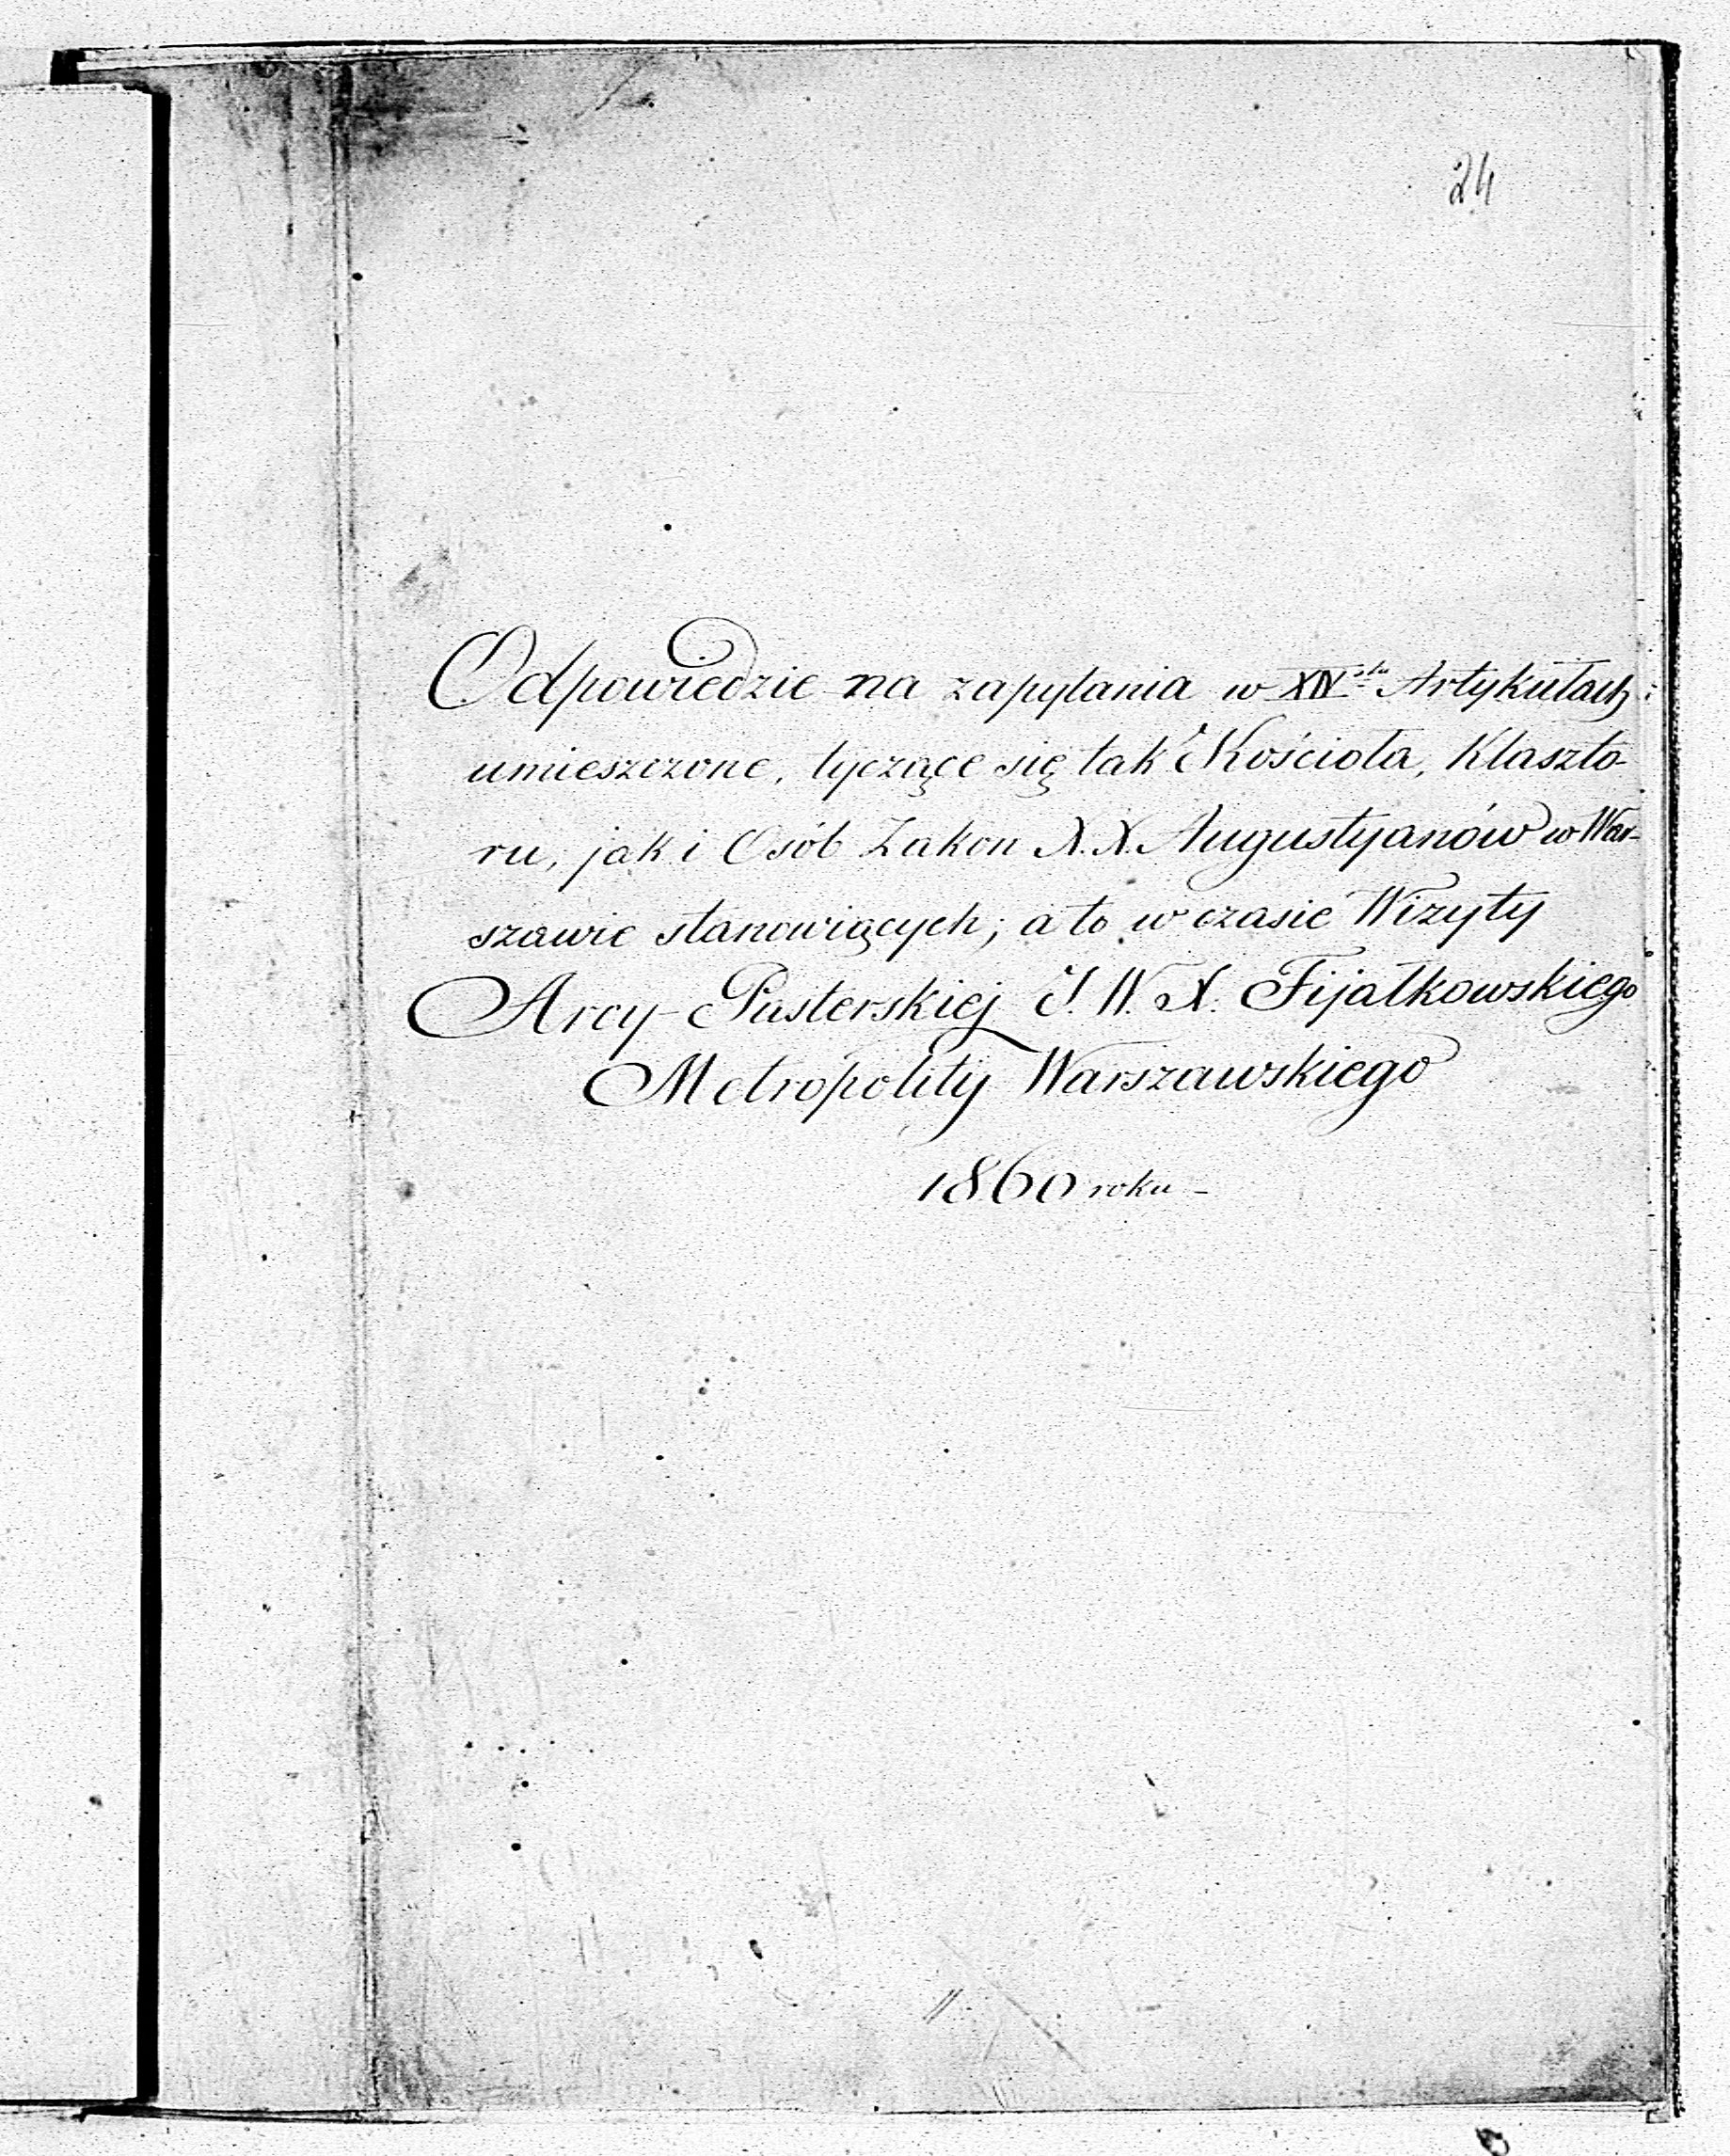 24
Odpowiedzie na zapytania w XIV<sup>stu</sup> Artykułach
umieszczone, tyczące się tak Kościoła, Klaszto-
ru, jak i Osób Zakon X.X. Augustyanów w War-
szawie stanowiących; a to w czasie Wizyty
Arcy-Pasterskiej J. W. X. Fijałkowskiego
Metropolity Warszawskiego
1860 roku -